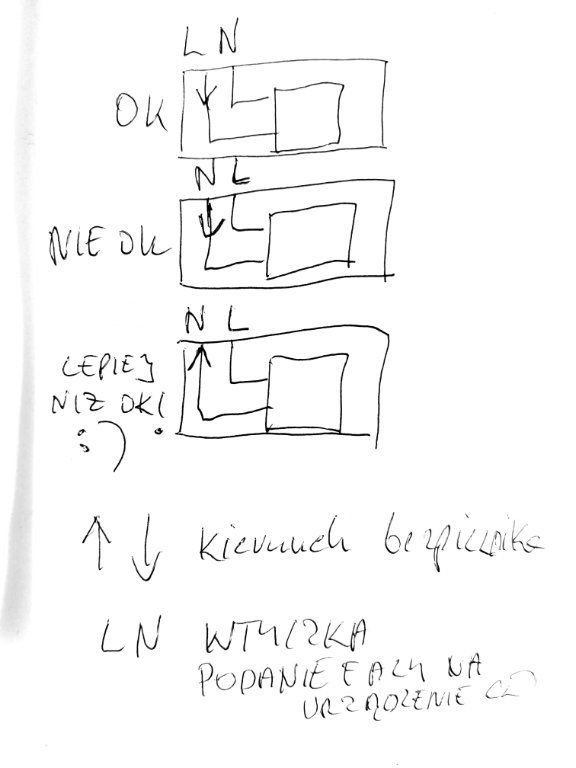 L N
OK
N L
NIE OK
N L
LEPIEJ
NIŻ OK!
:)
↑ ↓ kierunek bezpiecznika
L N WTYCZKA
PODANIE FAZY NA
URZĄDZENIE